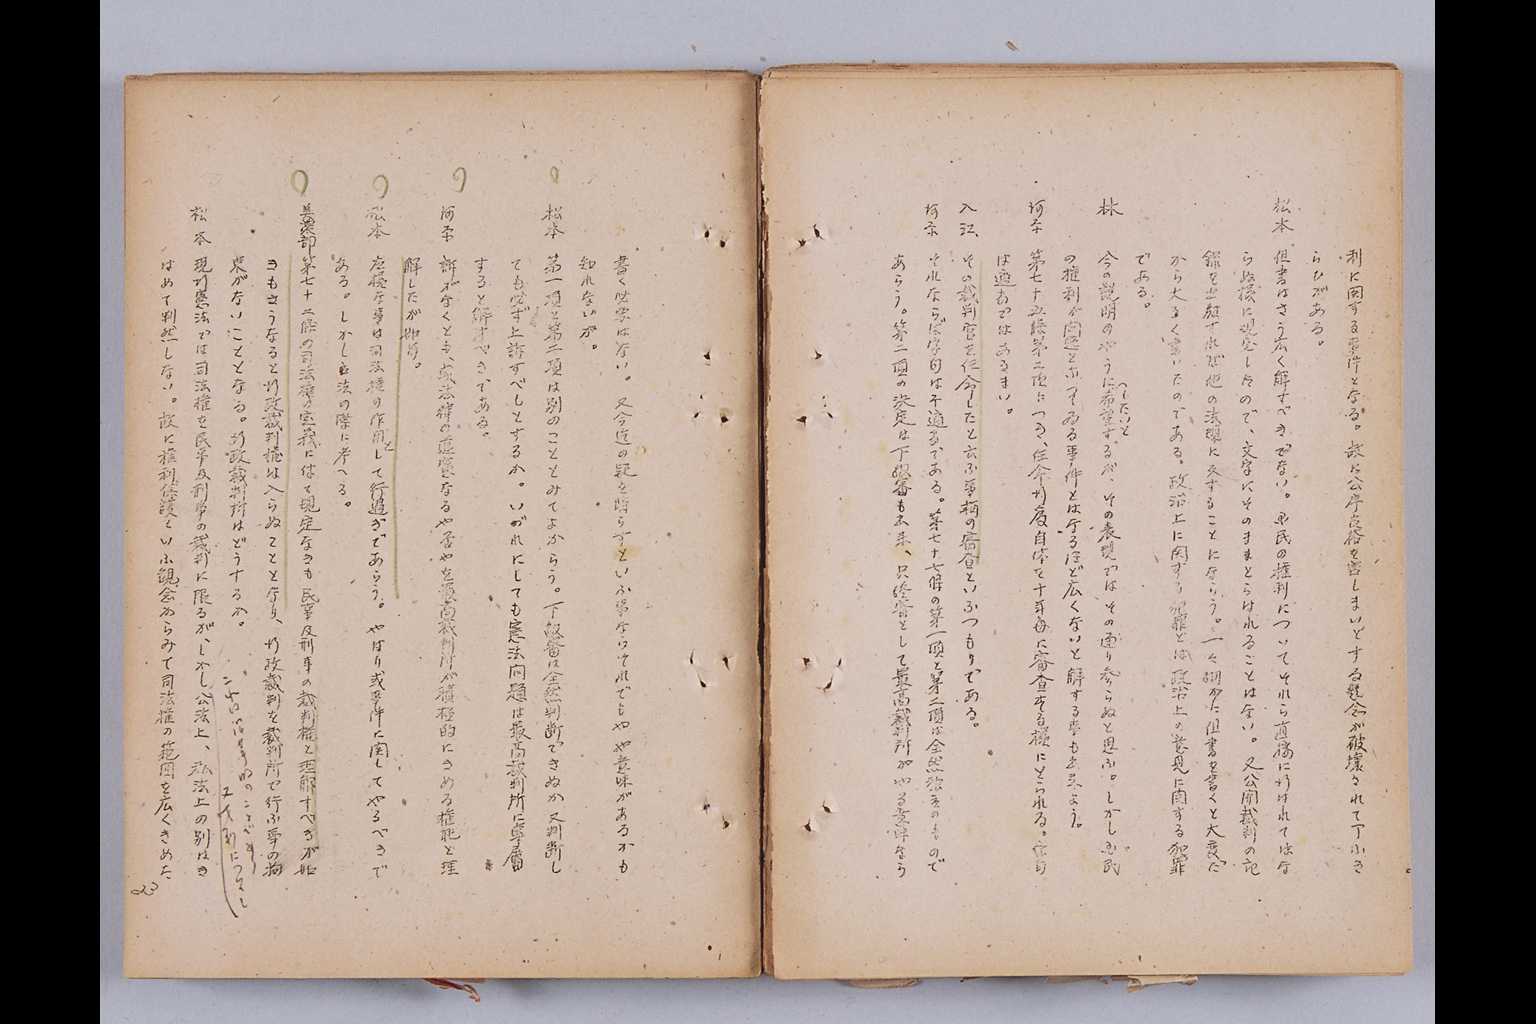 利に関する事件となる。故に公序良俗を害しまいとする懸念が破壊されて了ふき
らひがある。
松本 但書はさう広く解すべきでない。国民の権利についてそれら直接に行はれてはな
らぬ様に規定したので、文字にそのままとらはれることはない。又公開裁判の記
録を出版すれば他の法規に反することにならう。一々細かに但書を書くと大変だ
から大きく書いたのである。政治上に関する犯罪とは政治上の意見に関する犯罪
である。
林 今の説明のやうに希望するが、その表現ではその通り参らぬと思ふ。しかし国民
の権利が問題となってゐる事件とはなるほど広くないと解する事も出来よう。
河本 第七十五条第二項につき、任命行為自体を十年毎に審査する様にとられる。
は適当ではあるまい。
入江 その裁判官を任命したと云ふ事柄の審査といふつもりである。
河本 それならば字句は不適当である。第七十七条の第一項と第二項は全然
あらう。第二項の決定は下級審も出来、只終審として最高裁判所がやる意味なら
書く必要はない。又今迄の疑を晴らすといふ事ならそれでもやや意味があるかも
知れないが。
松本 第一項と第二項は別のこととみてよからう。下級審は全然判断できぬか又判断し
ても必ず上訴すべしとするか。いづれにしても憲法問題は最高裁判所に専属
すると解すべきである。
河本 訴がなくとも、或法律の違憲なるや否やを最高裁判所が積極的にきめる権能と理
解したが如何。
松本 左様な事は司法権の作用として行過ぎであらう。やはり或事件に関してやるべきで
ある。しかし立法の際に考へる。
美濃部 第七十二条の司法権の定義にはて規定なきも民事及刑事の裁判権と理解すべきが如
きもさうなると行政裁判権は入らぬこととなり、行政裁判を裁判所で行ふ事の拘
束がないこととなる。行政裁判所はどうするか。
松本 現行憲法では司法権を民事及刑事の裁判に限るが、しかし公法上、私法上の別はき
はめて判然しない。故に権利保護といふ観念からみて司法権の範囲を広くきめた
23